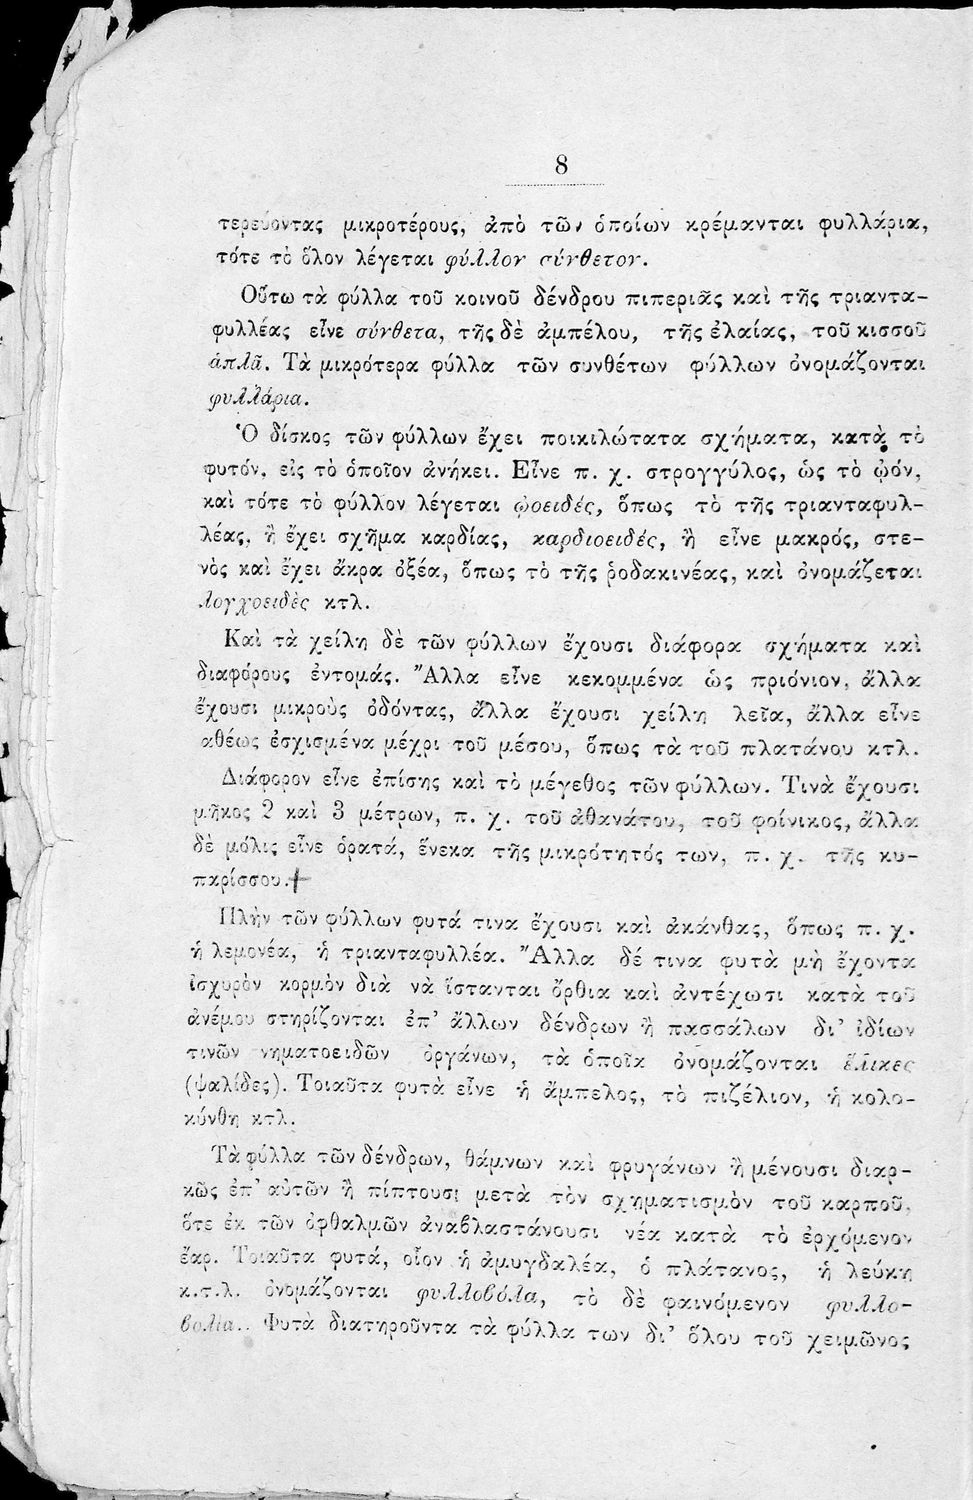 8
τερεύοντας μικροτέρους, ἀπὸ τῶν ὁποίων κρέμανται φυλλάρια,
τότε τὸ ὅλον λέγεται φύλλον σύνθετον.
Οὕτω τὰ φύλλα τοῦ κοινοῦ δένδρου πιπεριᾶς καὶ τῆς τριαντα-
φυλλέας εἶνε σύνθετα, τῆς δὲ ἀμπέλου, τῆς ἐλαίας, τοῦ κισσοῦ
ἁπλᾶ. Τὰ μικρότερα φύλλα τῶν συνθέτων φύλλων ὀνομάζονται
φυλλάρια.
Ὁ δίσκος τῶν φύλλων ἔχει ποικιλώτατα σχήματα, κατὰ τὸ
φυτόν, εἰς τὸ ὁποῖον ἀνήκει. Εἶνε π. χ. στρογγύλος, ὡς τὸ ᾠόν,
καὶ τότε τὸ φύλλον λέγεται ᾠοειδές, ὅπως τὸ τῆς τριανταφυλ-
λέας, ἢ ἔχει σχῆμα καρδίας, καρδιοειδές, ἢ εἶνε μακρός, στε-
νὸς καὶ ἔχει ἄκρα ὀξέα, ὅπως τὸ τῆς ῥοδακινέας, καὶ ὀνομάζεται
λογχοειδὲς κτλ.
Καὶ τὰ χείλη δὲ τῶν φύλλων ἔχουσι διάφορα σχήματα καὶ
διαφόρους ἐντομάς. Ἄλλα εἶνε κεκομμένα ὡς πριόνιον, ἄλλα
ἔχουσι μικροὺς ὀδόντας, ἄλλα ἔχουσι χείλη λεῖα, ἄλλα εἶνε
βαθέως ἐσχισμένα μέχρι τοῦ μέσου, ὅπως τὰ τοῦ πλατάνου κτλ.
Διάφορον εἶνε ἐπίσης καὶ τὸ μέγεθος τῶν φύλλων. Τινὰ ἔχουσι
μῆκος 2 καὶ 3 μέτρων, π. χ. τοῦ ἀθανάτου, τοῦ φοίνικος, ἄλλα
δὲ μόλις εἶνε ὁρατά, ἕνεκα τῆς μικρότητός των, π. χ. τῆς κυ-
παρίσσου.
Πλὴν τῶν φύλλων φυτά τινα ἔχουσι καὶ ἀκάνθας, ὅπως π. χ.
ἡ λεμονέα, ἡ τριανταφυλλέα. Ἄλλα δέ τινα φυτὰ μὴ ἔχοντα
ἰσχυρὸν κορμὸν διὰ νὰ ἵστανται ὄρθια καὶ ἀντέχωσι κατὰ τοῦ
ἀνέμου στηρίζονται ἐπ' ἄλλων δένδρων ἢ πασσάλων δι' ἰδίων
τινῶν νηματοειδῶν ὀργάνων, τὰ ὁποῖα ὀνομάζονται ἕλικες
(ψαλίδες). Τοιαῦτα φυτὰ εἶνε ἡ ἄμπελος, τὸ πιζέλιον, ἡ κολο-
κύνθη κτλ.
Τὰ φύλλα τῶν δένδρων, θάμνων καὶ φρυγάνων ἢ μένουσι διαρ-
κῶς ἐπ' αὐτῶν ἢ πίπτουσι μετὰ τὸν σχηματισμὸν τοῦ καρποῦ,
ὅτε ἐκ τῶν ὀφθαλμῶν ἀναβλαστάνουσι νέα κατὰ τὸ ἐρχόμενον
ἔαρ. Τοιαῦτα φυτά, οἷον ἡ ἀμυγδαλέα, ὁ πλάτανος, ἡ λεύκη
κ.τ.λ. ὀνομάζονται φυλλοβόλα, τὸ δὲ φαινόμενον φυλλο-
βολία.. Φυτὰ διατηροῦντα τὰ φύλλα των δι' ὅλου τοῦ χειμῶνος